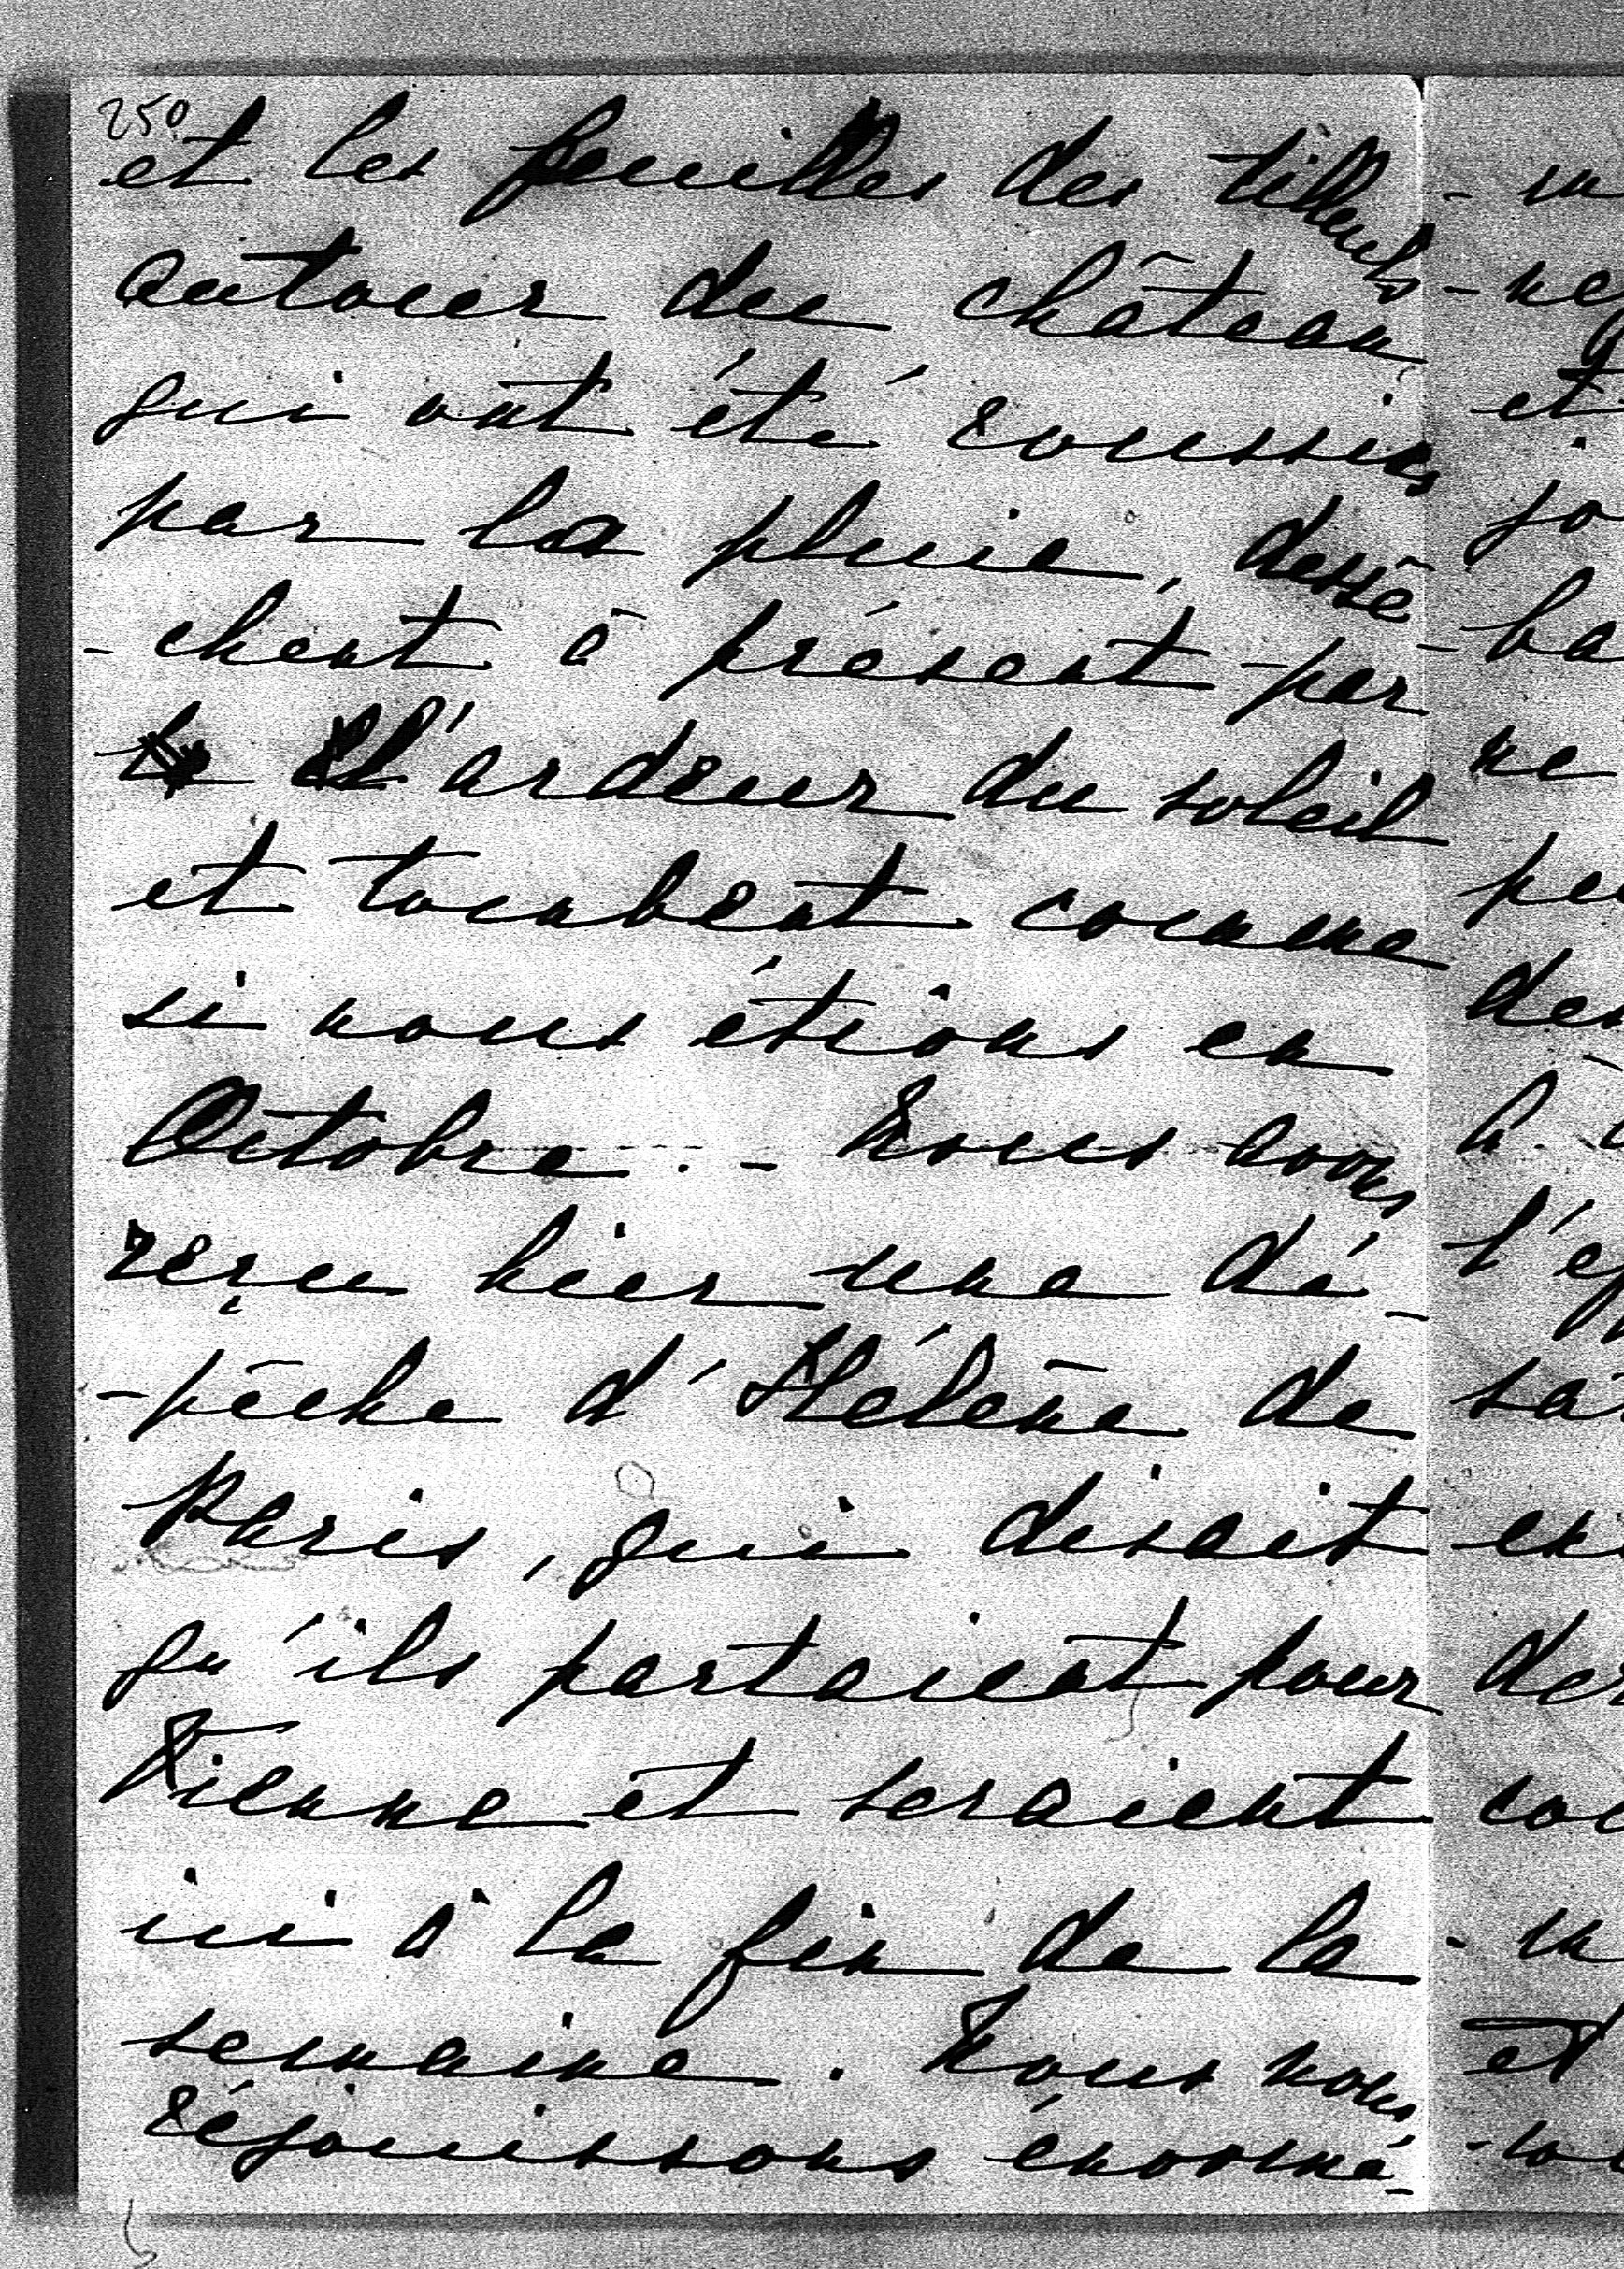 250
et les feuilles des tilleuls
autour du château
qui ont été roussies
par la pluie, dessé
-chent à présent par
l'ardeur du soleil
et tombent comme
si nous étions en
Octobre. - Nous avons
reçu hier une dé-
-pêche d'Hélène de
Paris, qui disait
qu'ils partaient pour
Vienne et seraient
ici à la fin de la
semaine. Nous nous
réjouissons énormé-